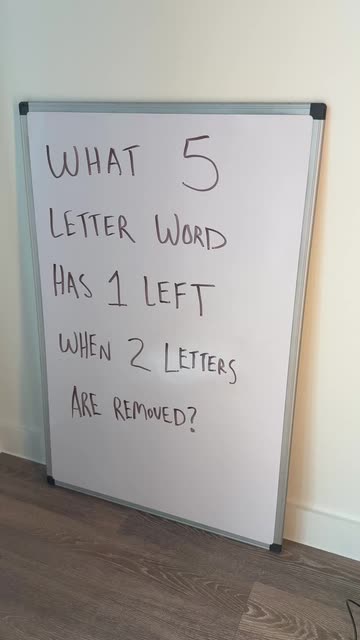 WHAT 5
LETTER WORD
HAS 1 LEFT
WHEN 2 LETTERS
ARE REMOVED?